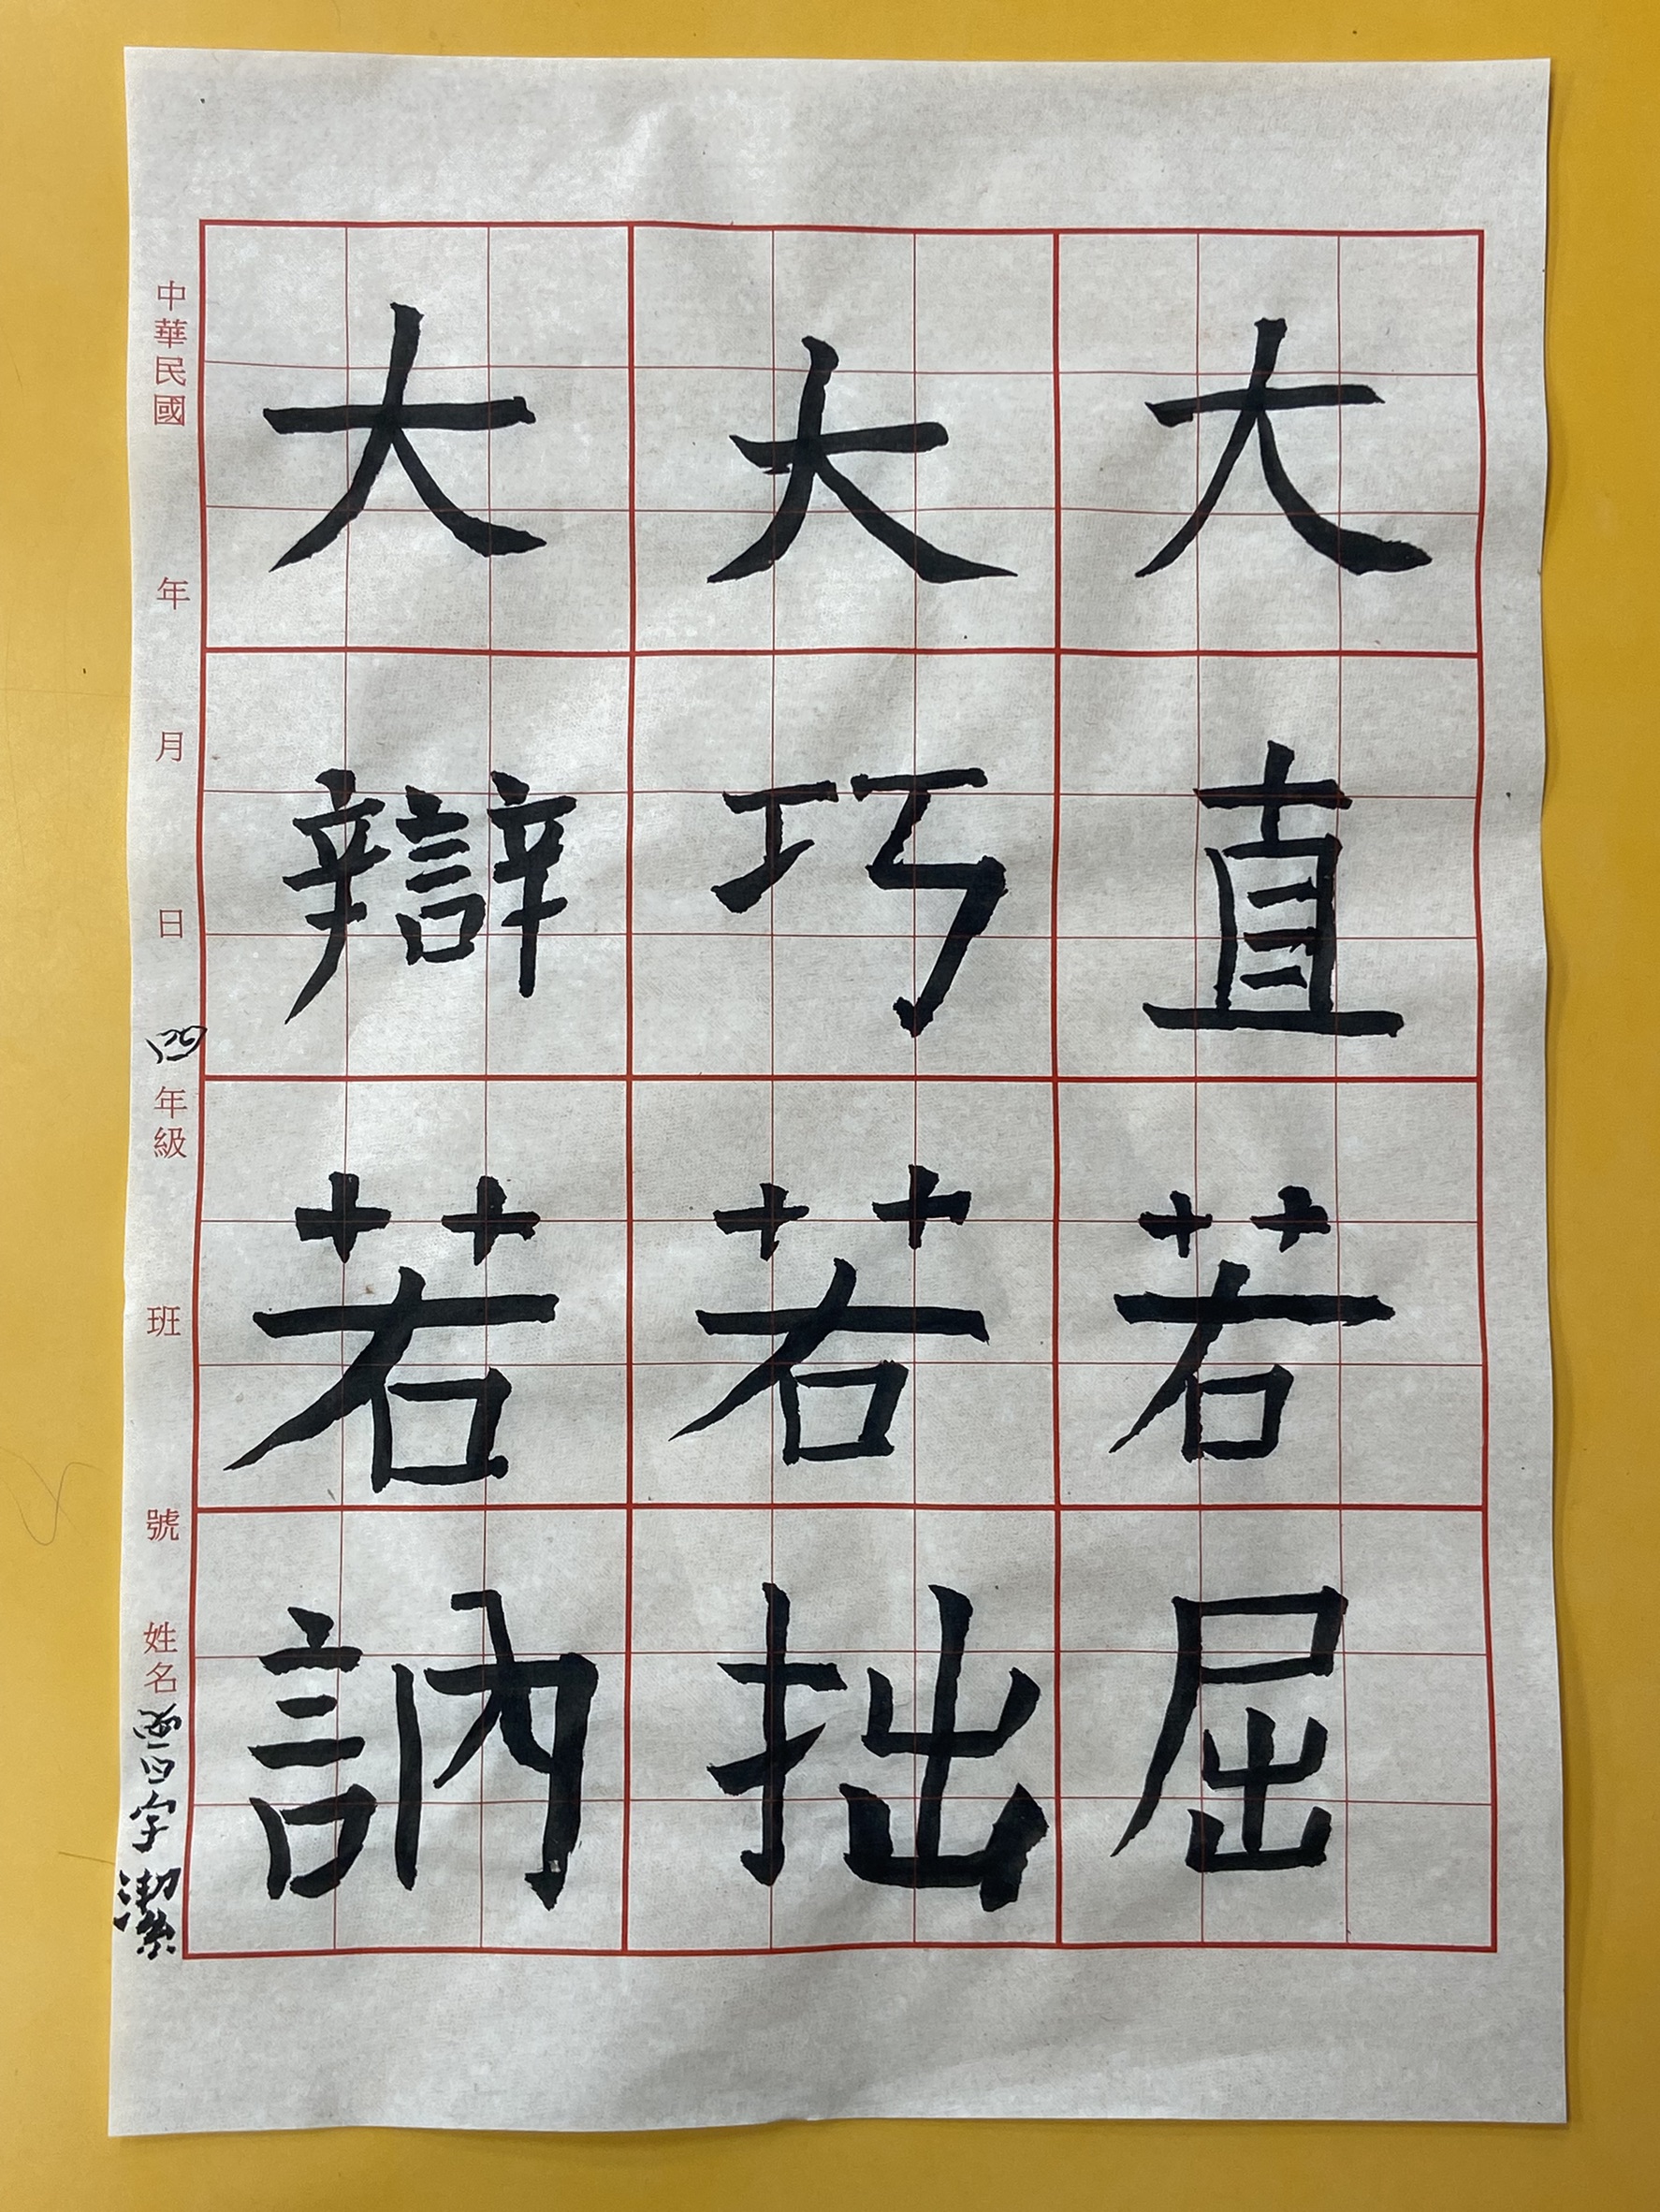 大直若屈
大巧若拙
大辯若訥
中華民國 年 月 日 四年級 班 號 姓名 字潔